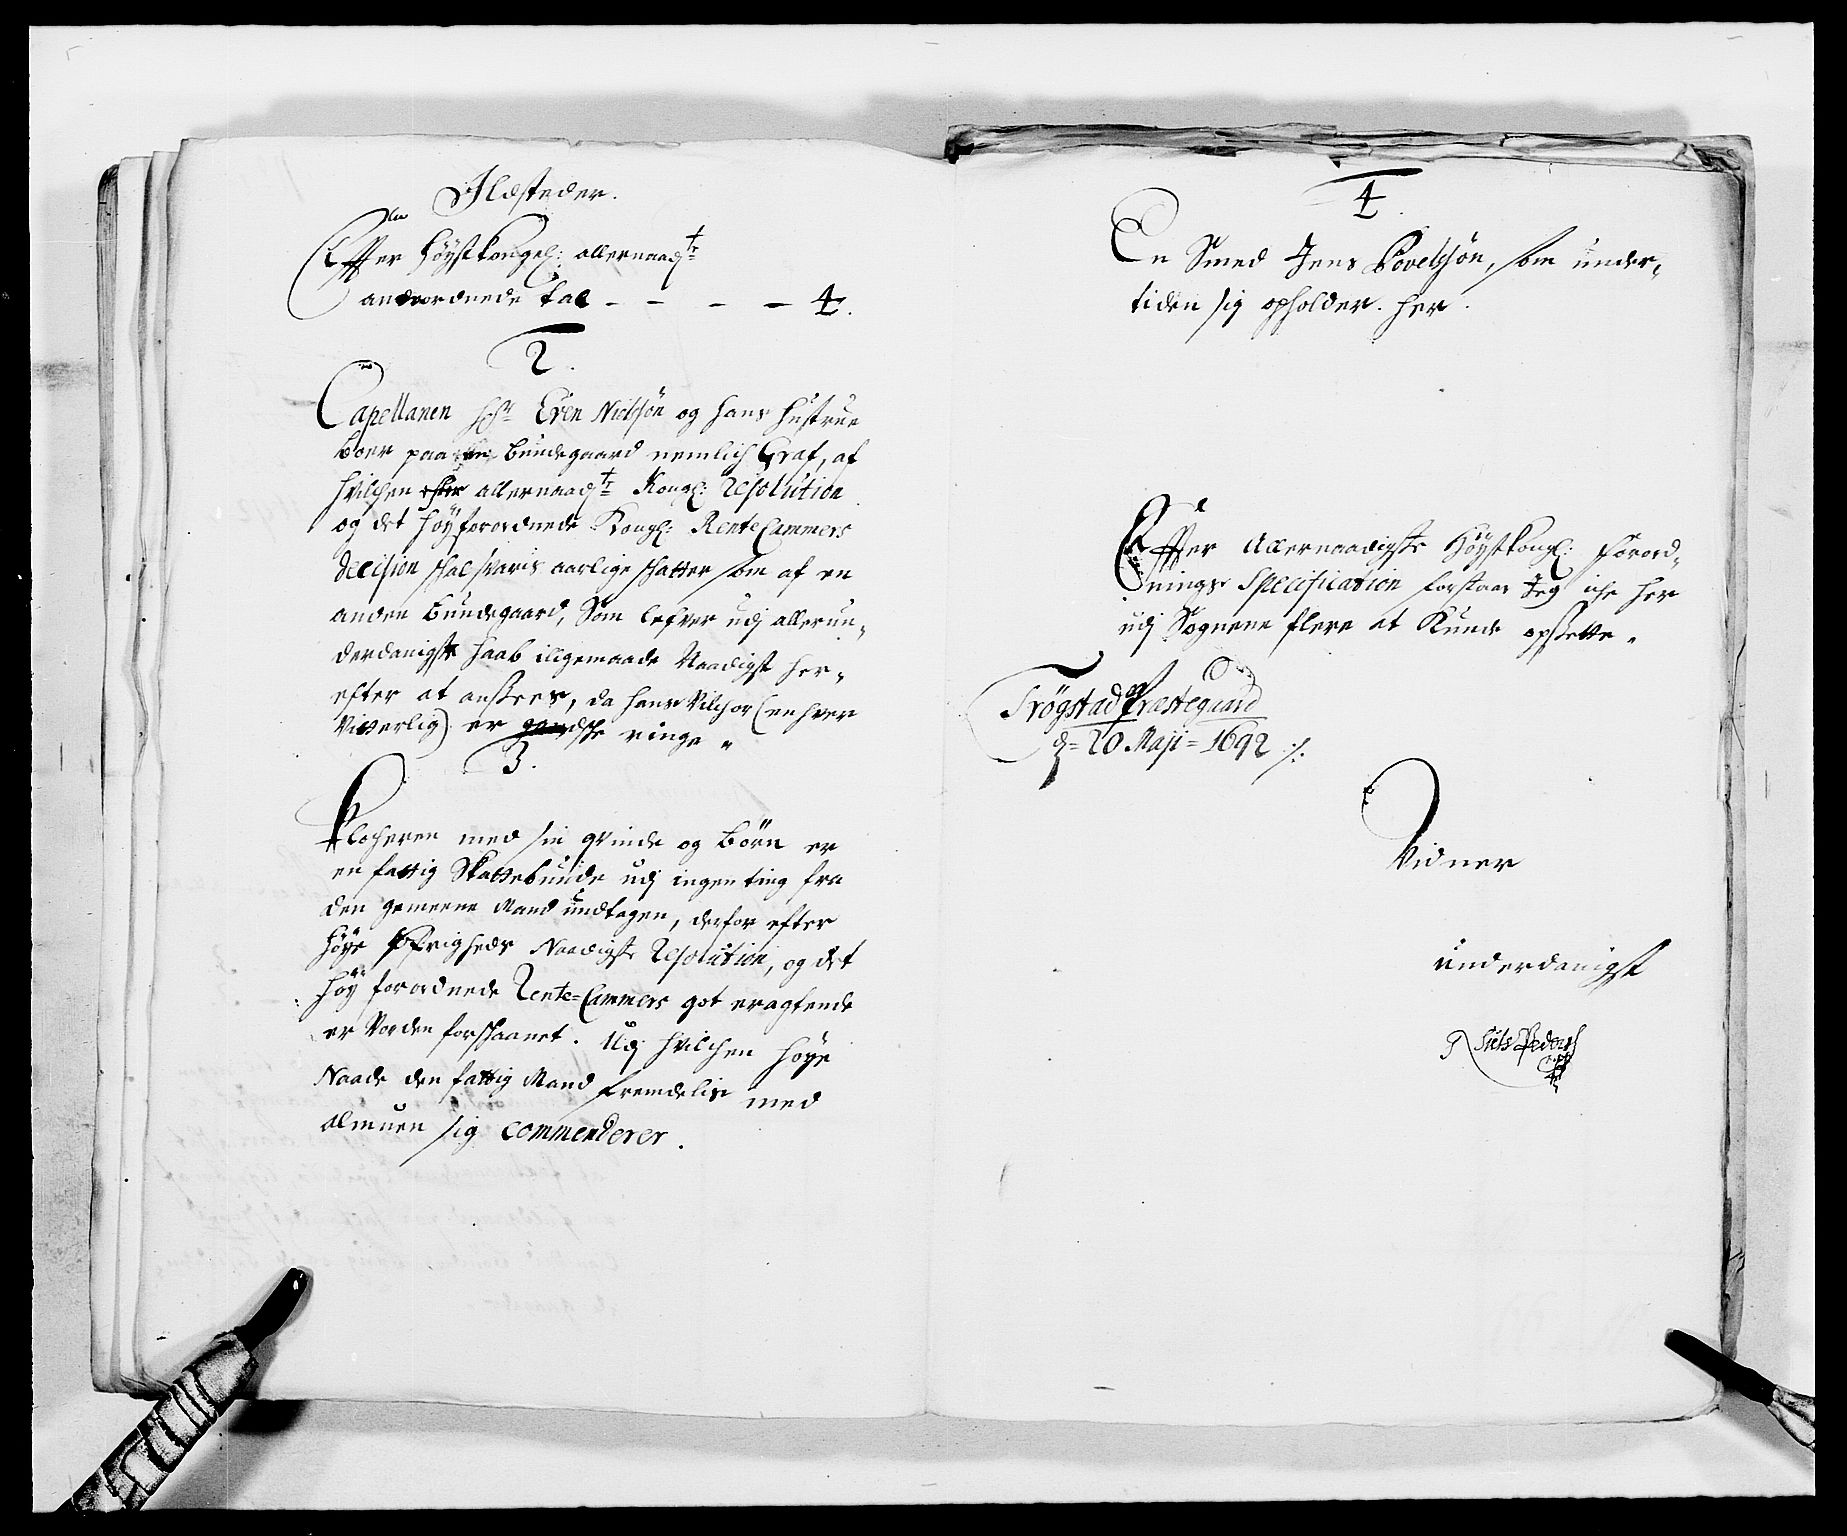 Ildsteder.
Effter höystkongel: allernaadste
anordnede tal - - - - 4.
2.
Capellanen hr Even Nielsön og hans hustrue
boer paa en bundegaard nemlich Graf, af
hvilchen allernaadste Kongl: Resolution
og det höyforordnede Kongl: Rente Cammers
decision schal svaris aarlige schatter som af en
anden bundegaard, Som lefver udj allerun-
derdanigste haab iligemaade Naadigst her-
efter at ansees, da hans Vilchor (en hver
Vitterlig) er gandsche ringe
3.
Klocheren med sin qvinde og börn er
en fattig Skattebunde udj ingen ting fra
den gemeene Mand undtagen, derfor efter
höye öfvrigheds Naadigste Resolution, og det
höy forordnede Rente-Cammers got eragtende
er vorden forschaanet. Udj hvilchen höye
Naade den fattig Mand fremdelis med
almuen sig commenderer.
4.
En Smed Jens Povelsön, som under-
tiden sig opholder her.
Effter Allernaadigste Höystkongl: forord-
nings Specification forstaar Jeg iche her
udj Sognene flere at kunde opsette.
Trögstad Præstegaard
d= 20 Maji = 1692 ./.
Vidner
underdanigst
Niels Peders